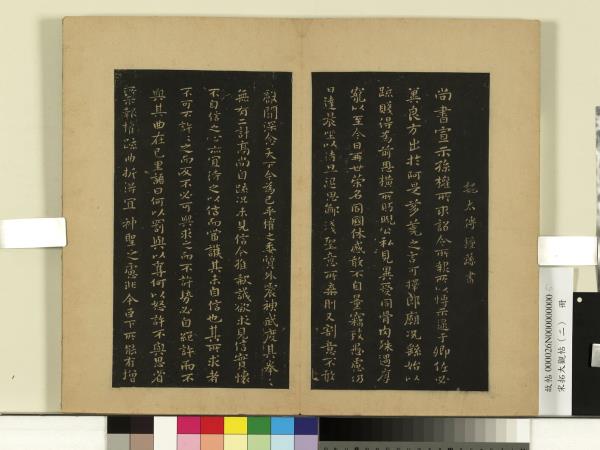 魏太傅鍾繇書
尚書宣示孫權所求詔令所報所以博示逮于卿佐必
冀良方出於阿是芻蕘之言可擇郎廟況繇始以
疏賤得為前恩橫所眄睨公私見異愛同骨肉殊遇厚
寵以至今日再世榮名同國休慼敢不自量竊致愚慮仍
日達晨坐以待旦退思鄙淺聖意所棄則又割意不敢
獻聞深念天下今為已平權之委質外震神武度其拳々
無有二計高尚自疏況未見信今推款誠欲求見信實懷
不自信之心亦宜待之以信而當護其未自信也其所求者
不可不許々之而反不必可與求之而不許勢必自絕許而不
與其曲在己里語曰何以罰與以奪何以怒許不與思省
所示報權疏曲折得宜神聖之慮非今臣下所能有增
故帖 000026N000000000
宋拓大觀帖（二） 冊